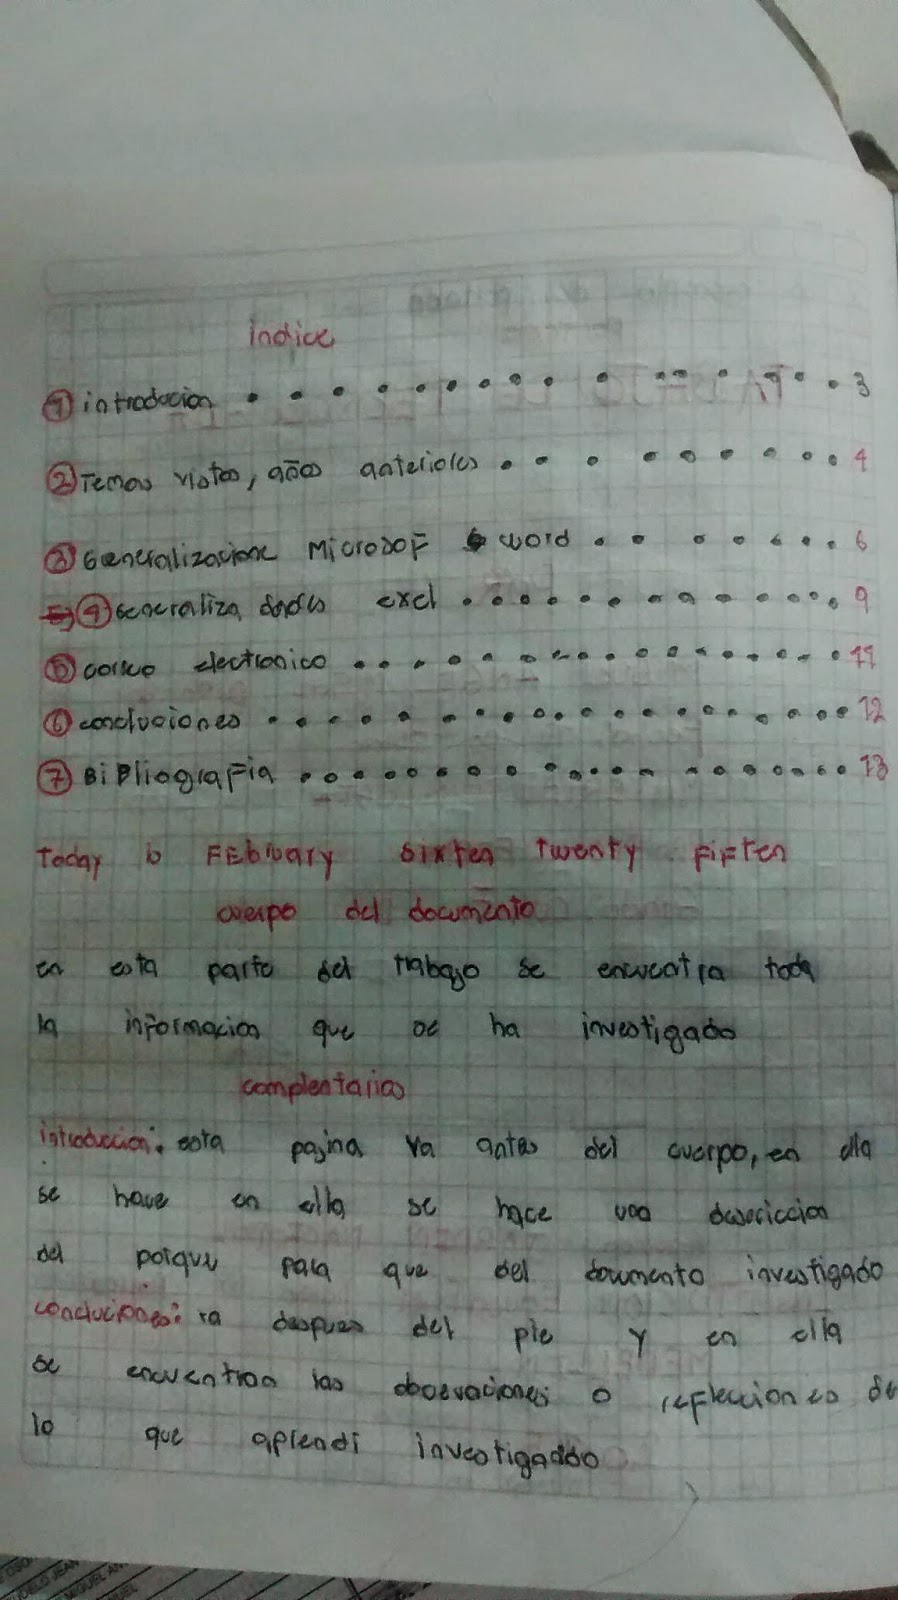 indice
1 introducion . . . . . . . . . . . . . . . . 3
2 Temas vistos, años anteriores . . . . . . . . . . 4
3 Generalizacione Microsof word . . . . . . . . 6
4 Generaliza dades excl . . . . . . . . . . . . . . 9
5 correo electronico . . . . . . . . . . . . . . . . 11
6 concluciones . . . . . . . . . . . . . . . . . . 12
7 BiBliografia . . . . . . . . . . . . . . . . . . 13
Today is FEbruary sixten Twenty FiFten
cuerpo del documento
en esta parte del trabajo se encuentra toda
la informacion que se ha investigado
complentarios
introduccion: esta pagina va antes del cuerpo, en ella
se have en ella se hace una descriccion
del porque para que del documento investigado
concluciones: va despues del pie y en ella
se encuentran las obsevaciones o reflecciones de
lo que aprendi investigaddo
MIGUEL